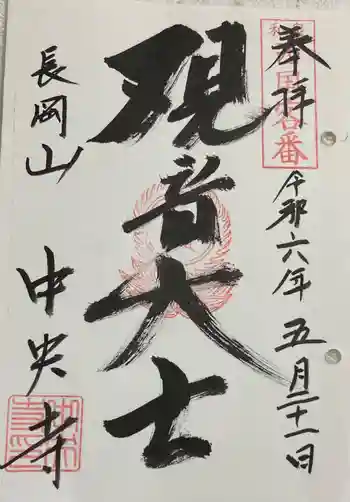 奉拝
令和六年五月二十一日
現音大士
長岡山
中央寺